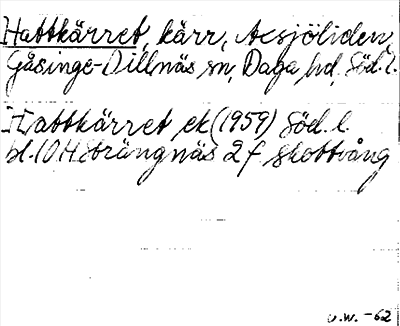 Hattkärret, kärr, Acsjöliden,
Gåsinge-Dillnäs sn, Daga hd, Söd. l.
Hattkärret ek (1959) Söd. l.
bl. 10H Strängnäs 2 f skottvång
U.W. -62